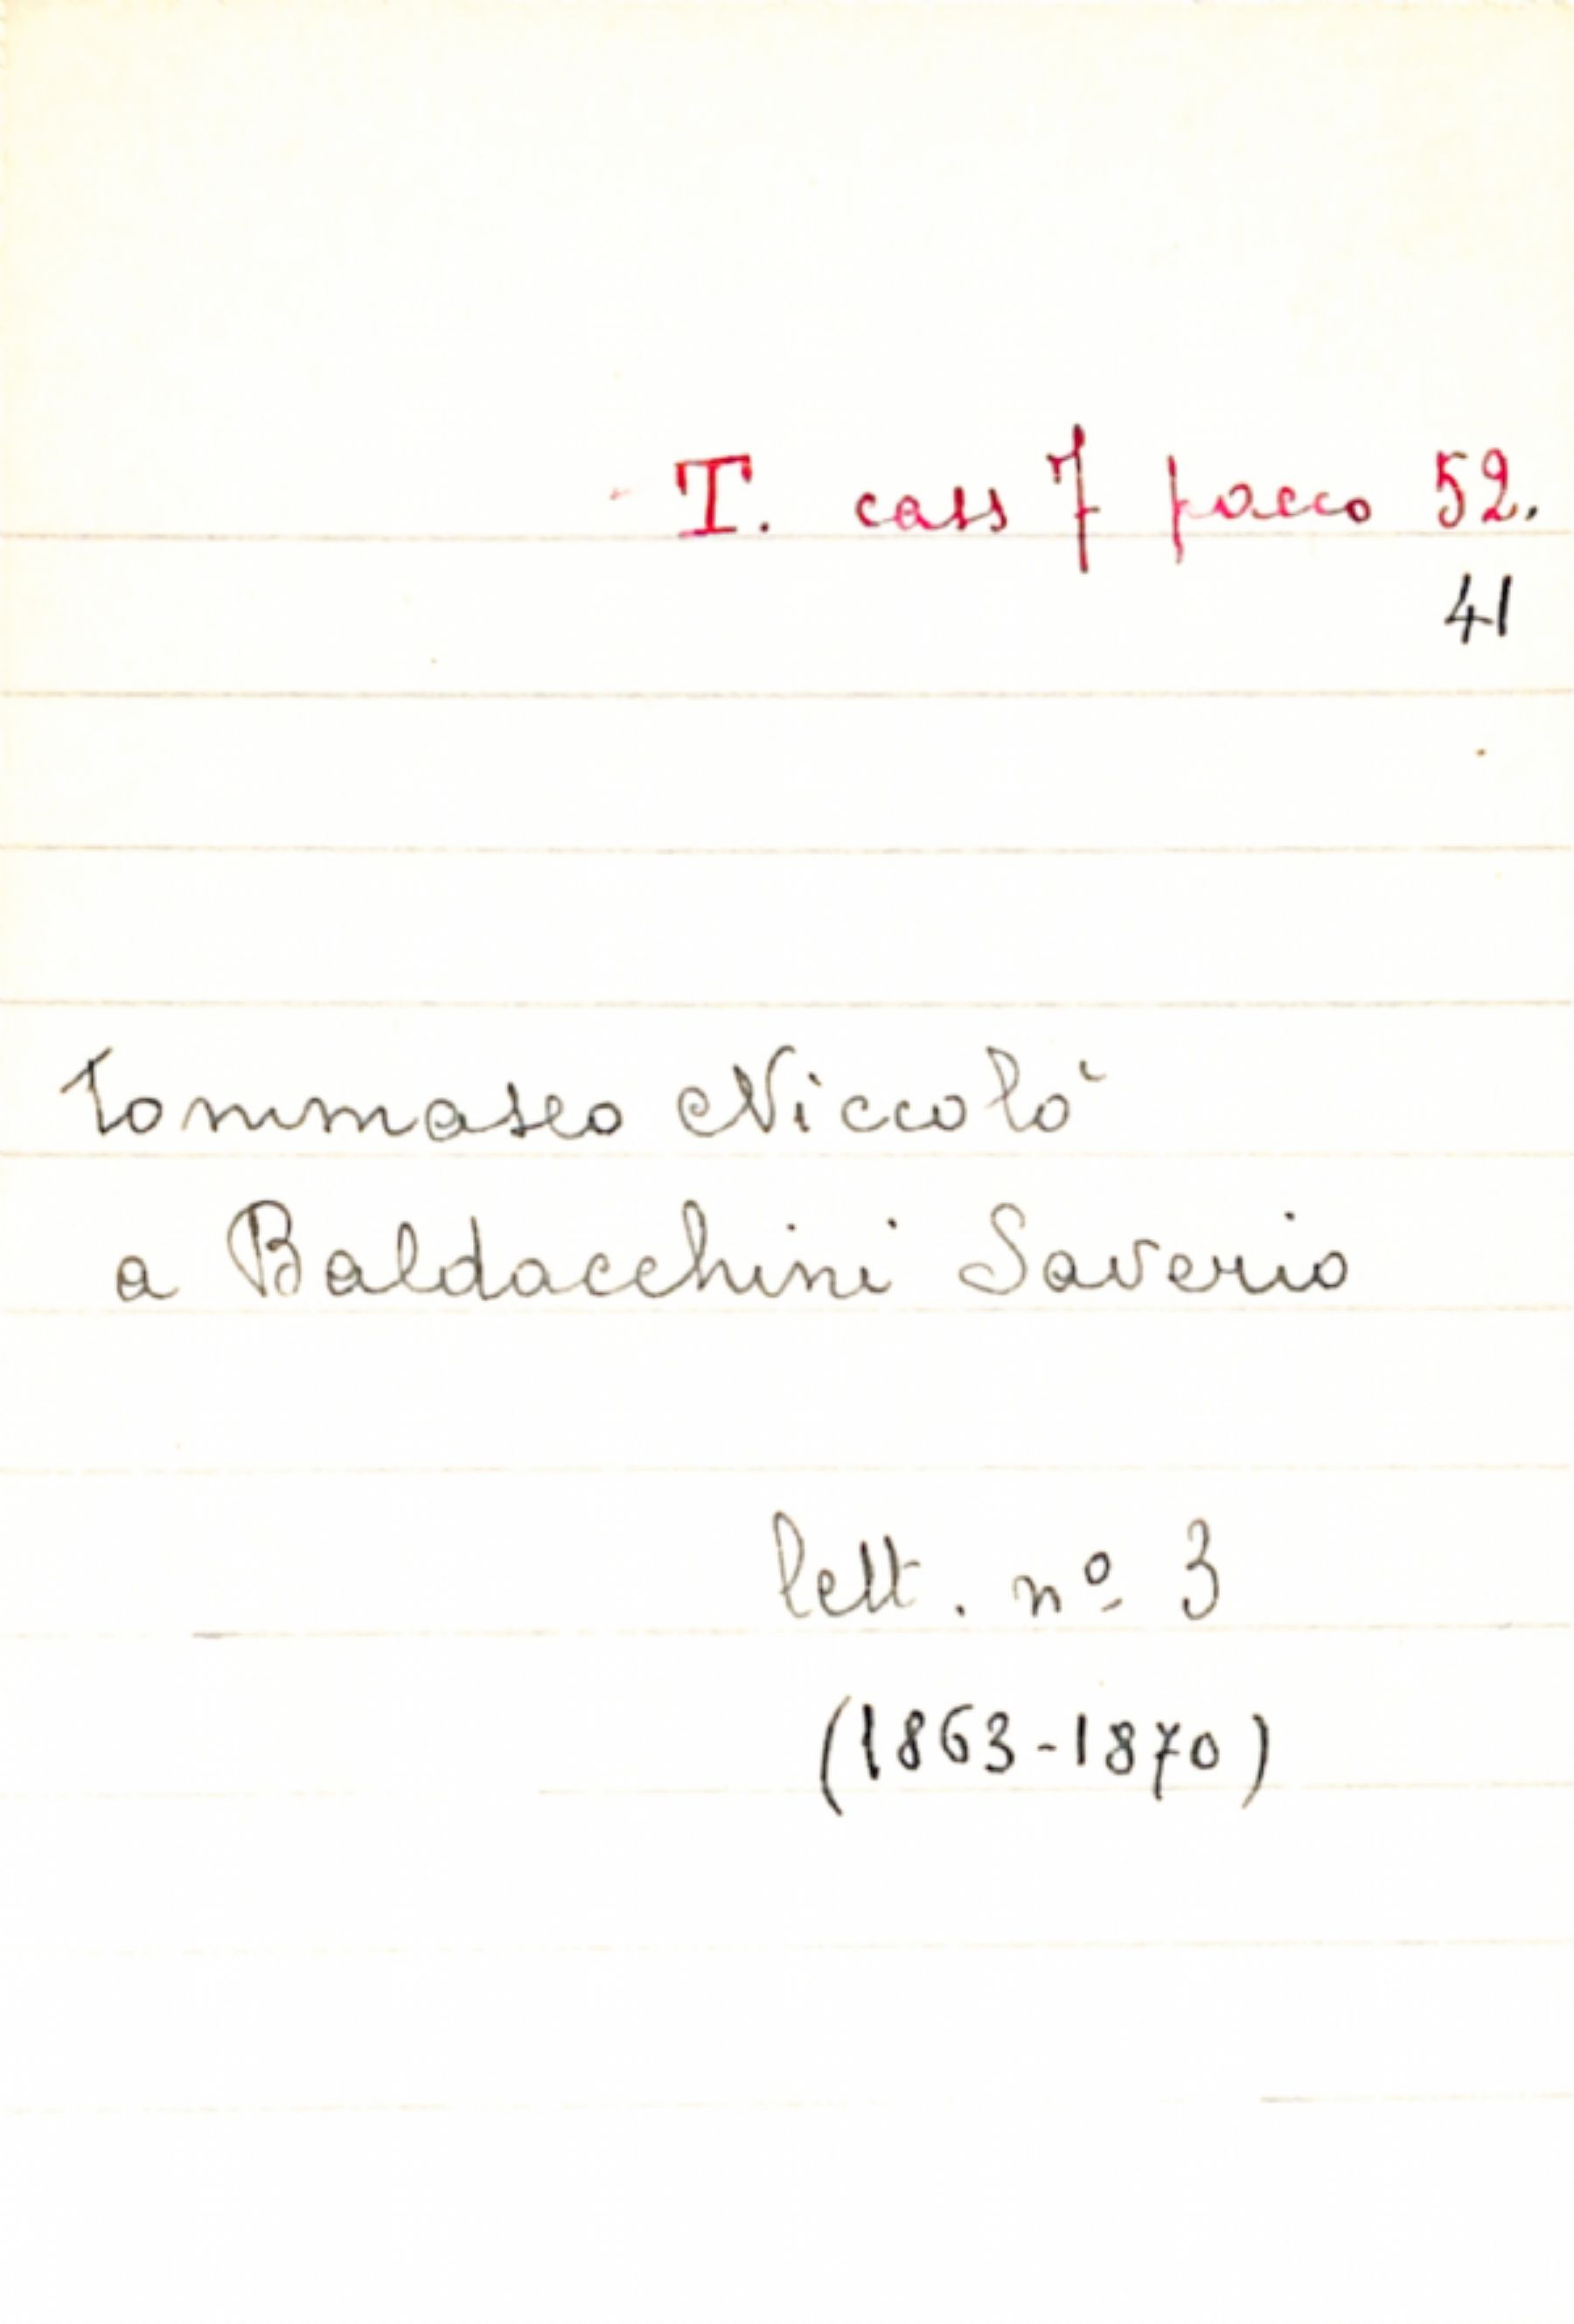 T. cass 7 pacco 52.
41
Tommaseo Niccolò
a Baldacchini Saverio
lett. nº 3
(1863-1870)